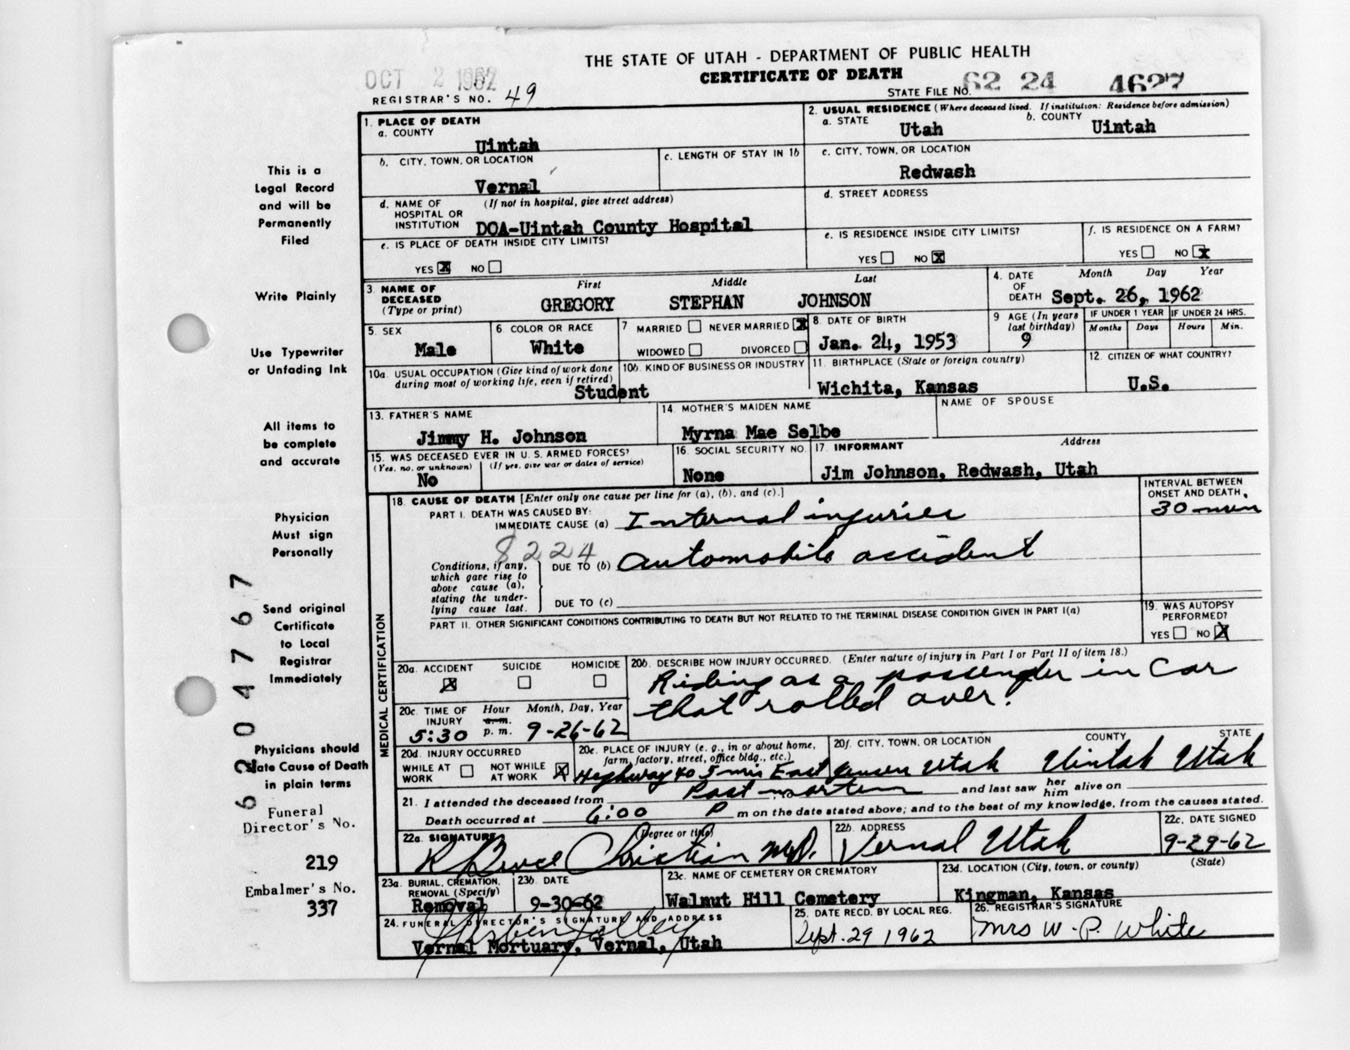 THE STATE OF UTAH - DEPARTMENT OF PUBLIC HEALTH
CERTIFICATE OF DEATH
OCT 2 1962
REGISTRAR'S NO. 49
STATE FILE NO. 62 24 4627
1. PLACE OF DEATH
a. COUNTY
Uintah
2. USUAL RESIDENCE (Where deceased lived. If institution: Residence before admission)
a. STATE Utah b. COUNTY Uintah
b. CITY, TOWN, OR LOCATION
Vernal
c. LENGTH OF STAY IN 1b
c. CITY, TOWN, OR LOCATION
Redwash
d. NAME OF HOSPITAL OR INSTITUTION (If not in hospital, give street address)
DOA-Uintah County Hospital
d. STREET ADDRESS
e. IS PLACE OF DEATH INSIDE CITY LIMITS?
YES X NO
e. IS RESIDENCE INSIDE CITY LIMITS?
YES NO X
f. IS RESIDENCE ON A FARM?
YES NO X
3. NAME OF DECEASED (Type or print)
First Middle Last
GREGORY STEPHAN JOHNSON
4. DATE OF DEATH Month Day Year
Sept. 26, 1962
5. SEX
Male
6 COLOR OR RACE
White
7 MARRIED NEVER MARRIED X
WIDOWED DIVORCED
8. DATE OF BIRTH
Jan. 24, 1953
9 AGE (In years last birthday)
9
IF UNDER 1 YEAR IF UNDER 24 HRS.
Months Days Hours Min.
10a. USUAL OCCUPATION (Give kind of work done during most of working life, even if retired)
Student
10b. KIND OF BUSINESS OR INDUSTRY
11. BIRTHPLACE (State or foreign country)
Wichita, Kansas
12. CITIZEN OF WHAT COUNTRY?
U.S.
13. FATHER'S NAME
Jimmy H. Johnson
14. MOTHER'S MAIDEN NAME
Myrna Mae Selbe
NAME OF SPOUSE
15. WAS DECEASED EVER IN U.S. ARMED FORCES?
(Yes, no, or unknown) (If yes, give war or dates of service)
No
16. SOCIAL SECURITY NO.
None
17. INFORMANT Address
Jim Johnson, Redwash, Utah
MEDICAL CERTIFICATION
18. CAUSE OF DEATH [Enter only one cause per line for (a), (b), and (c).]
INTERVAL BETWEEN ONSET AND DEATH
PART I. DEATH WAS CAUSED BY:
IMMEDIATE CAUSE (a) Internal injuries 30 min
8224
Conditions, if any, which gave rise to above cause (a), stating the underlying cause last.
DUE TO (b) automobile accident
DUE TO (c)
PART II. OTHER SIGNIFICANT CONDITIONS CONTRIBUTING TO DEATH BUT NOT RELATED TO THE TERMINAL DISEASE CONDITION GIVEN IN PART I(a)
19. WAS AUTOPSY PERFORMED?
YES NO X
20a. ACCIDENT SUICIDE HOMICIDE
X
20b. DESCRIBE HOW INJURY OCCURRED. (Enter nature of injury in Part I or Part II of item 18.)
Riding as a passenger in car
that rolled over.
20c. TIME OF INJURY Hour a.m. p.m. Month, Day, Year
5:30 9-26-62
20d. INJURY OCCURRED
WHILE AT WORK NOT WHILE AT WORK X
20e. PLACE OF INJURY (e. g., in or about home, farm, factory, street, office bldg., etc.)
Highway 40 5 mis East
20f. CITY, TOWN, OR LOCATION COUNTY STATE
Jensen Utah Uintah Utah
21. I attended the deceased from Post mortem and last saw her him alive on
Death occurred at 6:00 P m on the date stated above; and to the best of my knowledge, from the causes stated.
22a. SIGNATURE (Degree or title)
R Bruce Christian M.D.
22b. ADDRESS
Vernal Utah
22c. DATE SIGNED
9-29-62
23a. BURIAL, CREMATION, REMOVAL (Specify)
Removal
23b. DATE
9-30-62
23c. NAME OF CEMETERY OR CREMATORY
Walnut Hill Cemetery
23d. LOCATION (City, town, or county) (State)
Kingman, Kansas
24. FUNERAL DIRECTOR'S SIGNATURE AND ADDRESS
Vernal Mortuary, Vernal, Utah
25. DATE RECD. BY LOCAL REG.
Sept. 29 1962
26. REGISTRAR'S SIGNATURE
Mrs W. P. White
This is a
Legal Record
and will be
Permanently
Filed
Write Plainly
Use Typewriter
or Unfading Ink
All items to
be complete
and accurate
Physician
Must sign
Personally
Send original
Certificate
to Local
Registrar
Immediately
Physicians should
state Cause of Death
in plain terms
Funeral
Director's No.
219
Embalmer's No.
337
6204767